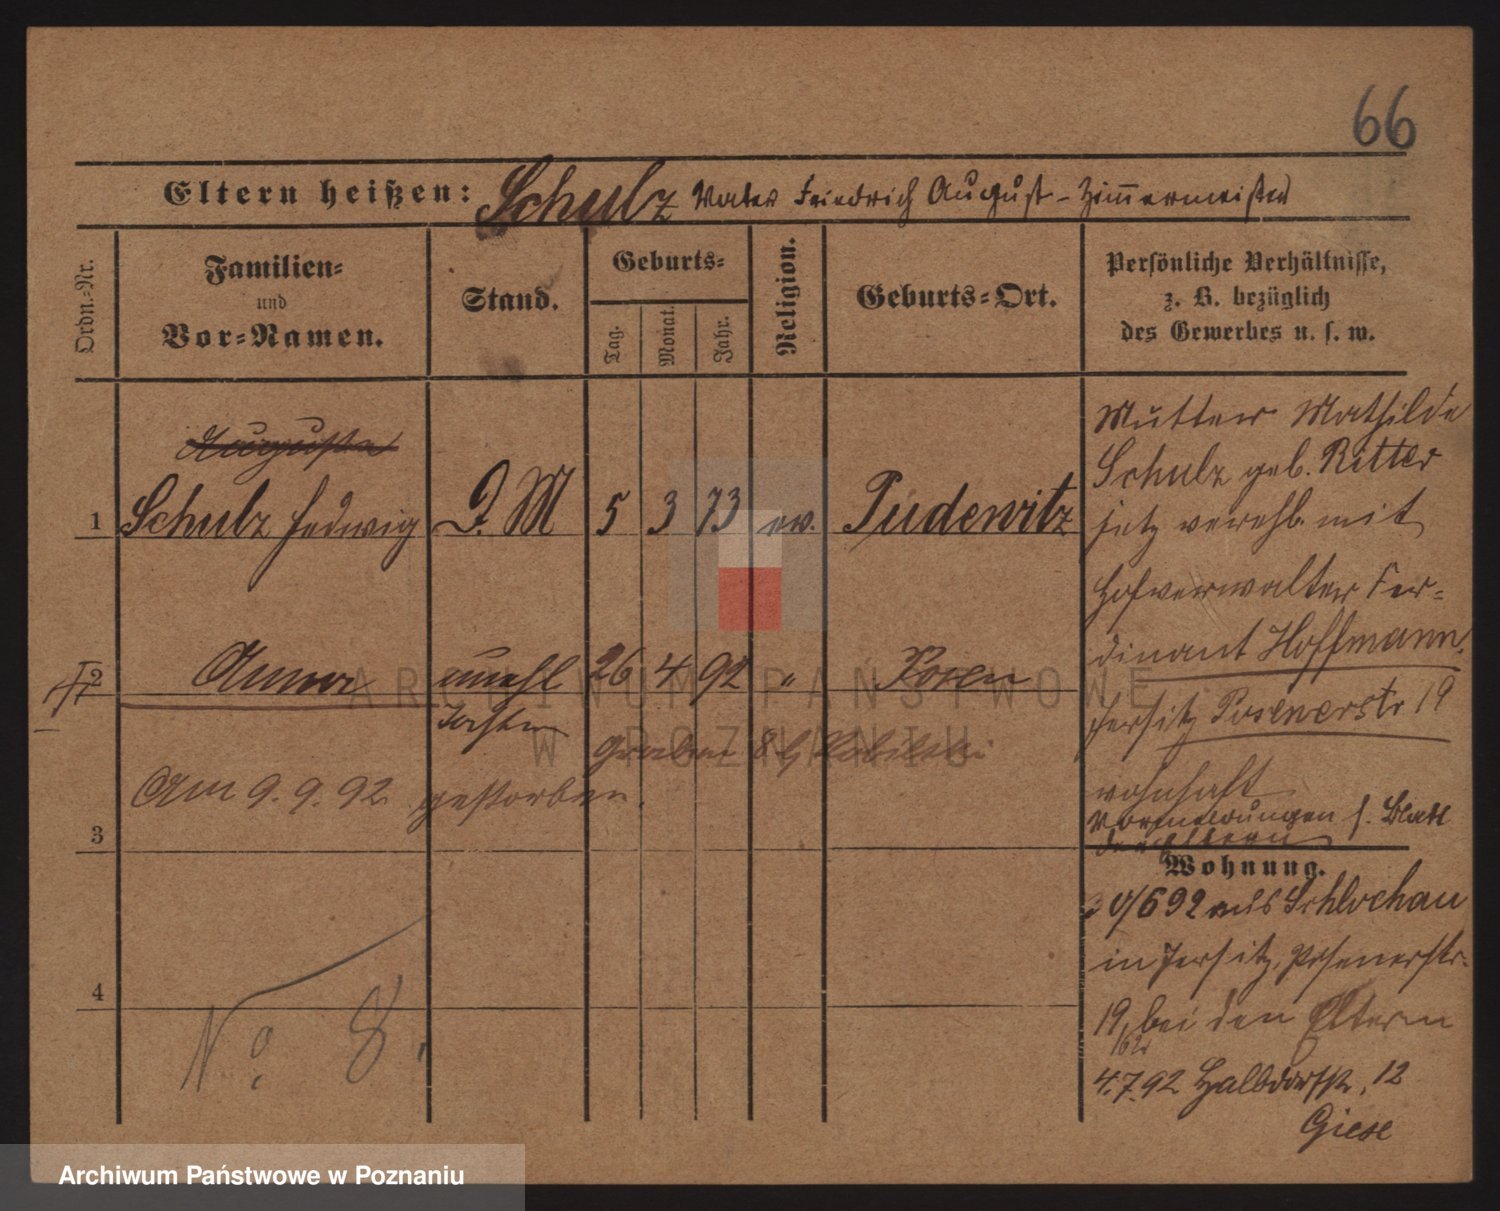 66
Eltern heißen: Schulz Vater Friedrich August - Zimmermeister
Ordn.-Nr.
Familien-
und
Vor-Namen.
Stand.
Geburts-
Tag.
Monat.
Jahr.
Religion.
Geburts-Ort.
Persönliche Verhältnisse,
z. B. bezüglich
des Gewerbes u. s. w.
Auguste
1 Schulz Hedwig D. M 5 3 73 ev. Pudewitz
Mutter Mathilde
Schulz geb. Ritter
jetz verehl. mit
Hofverwalter Fer-
dinant Hoffmann,
Jersitz Posenerstr 19
wohnhaft
2 Anna unehl 26 4 92 " Posen
Tochter
Graben 8 b/
Am 9.9.92 gestorben.
3
s. Blatt
der Eltern
Wohnung.
30/6 92 aus Schlochau
in Jersitz, Posenerstr.
19, bei den Eltern
4.7.92 Halbdorfstr. 12
Giese
4
No 8.
ARCHIWUM PAŃSTWOWE
W POZNANIU
Archiwum Państwowe w Poznaniu